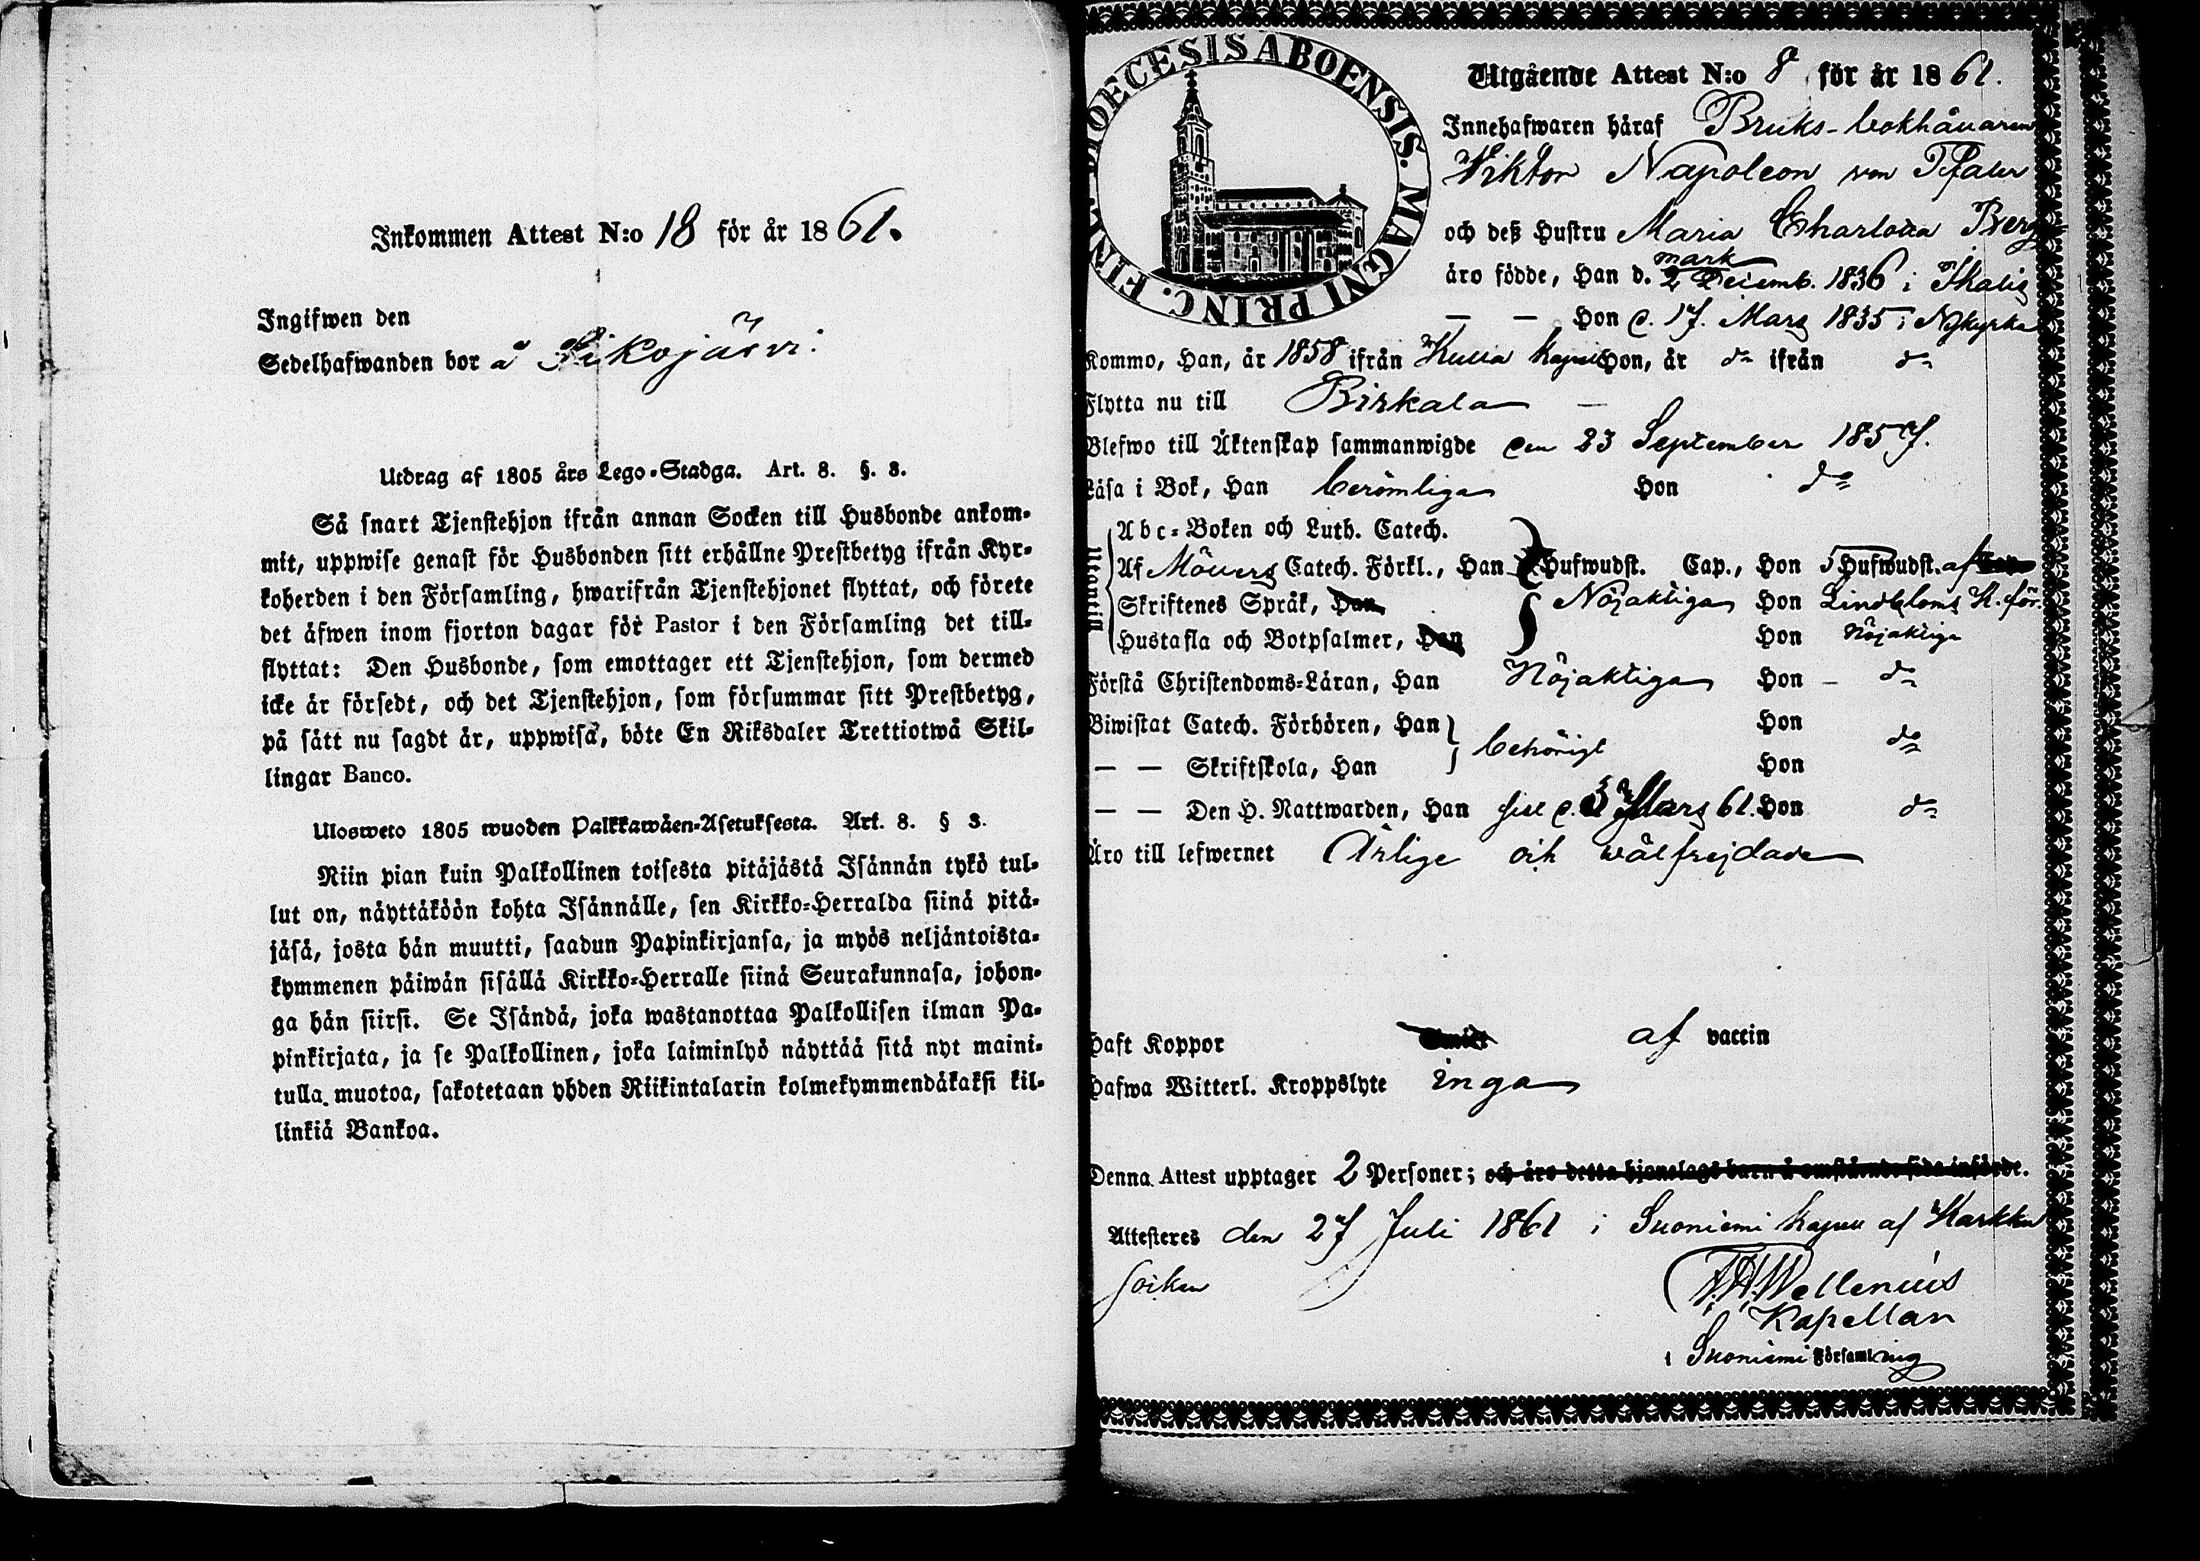 Inkommen Attest N:o 18 för år 1861.
Ingifwen den
Sedelhafwanden bor å Sikojärvi.
Utdrag af 1805 års Lego-Stadga. Art. 8. §. 3.
Så snart Tjenstehjon ifrån annan Socken till Husbonde ankom-
mit, uppwise genast för Husbonden sitt erhållne Prestbetyg ifrån Kyr-
koherden i den Församling, hwarifrån Tjenstehjonet flyttat, och förete
det äfwen inom fjorton dagar för Pastor i den Församling det till-
flyttat: Den Husbonde, som emottager ett Tjenstehjon, som dermed
icke är försedt, och det Tjenstehjon, som försummar sitt Prestbetyg,
på sätt nu sagdt är, uppwisa, böte En Riksdaler Trettiotwå Skil-
lingar Banco.
Ulosweto 1805 wuoden Palkkawäen-Asetuksesta. Art. 8. § 3.
Niin pian kuin Palkollinen toisesta pitäjästä Isännän tykö tul-
lut on, näyttäköön kohta Isännälle, sen Kirkko-Herralda siinä pitä-
jäsä, josta hän muutti, saadun Papinkirjansa, ja myös neljäntoista-
kymmenen päiwän sisällä Kirkko-Herralle siinä Seurakunnasa, johon-
ga hän siirsi. Se Isändä, joka wastanottaa Palkollisen ilman Pa-
pinkirjata, ja se Palkollinen, joka laiminlyö näyttää sitä nyt maini-
tulla muotoa, sakotetaan yhden Riikintalarin kolmekymmendäkaksi kil-
linkiä Bankoa.
DIOECESIS ABOENSIS. MAGNI PRINC. FINL.
Utgående Attest N:o 8 för år 1861.
Innehafwaren häraf Bruks-bokhållaren
Viktor Napoleon von Pfaler
och deß Hustru Maria Charlotta Berg-
mark
äro födde, Han d. 2 Decemb. 1836 i Ikalis
— — Hon d. 17. Mars 1835 i Nykyrka
Kommo, Han, år 1858 ifrån Kulla kapell Hon, år do ifrån do
Flytta nu till Birkala —
Blefwo till Äktenskap sammanwigde den 23 September 1857.
Läsa i Bok, Han berömliga Hon do
Utantill
Abc-Boken och Luth. Catech.
Af Möllers Catech. Förkl., Han Hufwudst. Cap., Hon 5 Hufwudst. af Cap
Skriftenes Språk, Han Nöjaktiga Hon Lindbloms K. för.
Hustafla och Botpsalmer, Han Hon Nöjaktiga
Förstå Christendoms-Läran, Han Nöjaktiga Hon — do
Biwistat Catech. Förhören, Han behörigt Hon do
— — Skriftskola, Han Hon
— — Den H. Nattwarden, Han sist d. 3 Mars 61. Hon do
Äro till lefwernet Ärlige och wälfrejdade
Haft Koppor af vaccin
Hafwa Witterl. Kroppslyte inga
Denna Attest upptager 2 Personer; och äro detta hjonelags barn å omstående sida införde.
Attesteres den 27 Juli 1861 i Suoniemi kapell af Karkku
Socken
Wellenius
Kapellan
i Suoniemi Församling